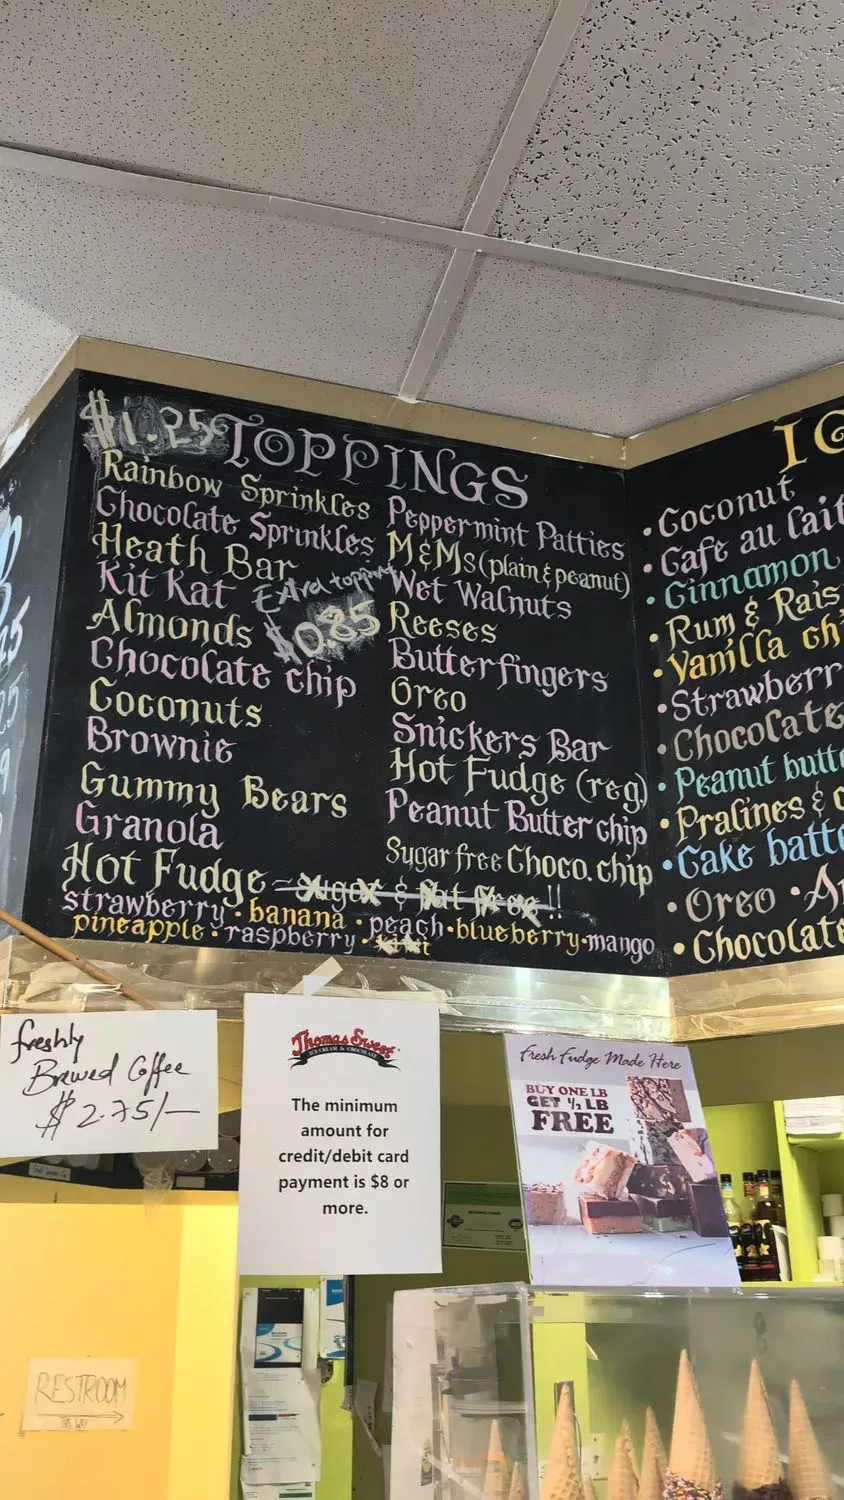 $1.25 TOPPINGS
Rainbow Sprinkles
Chocolate Sprinkles
Heath Bar
Kit Kat
Extra topping
$0.85
Almonds
Chocolate chip
Coconuts
Brownie
Gummy Bears
Granola
Hot Fudge - Sugar & Fat Free!!
Peppermint Patties
M&Ms (plain & peanut)
Wet Walnuts
Reeses
Butterfingers
Oreo
Snickers Bar
Hot Fudge (reg)
Peanut Butter chip
Sugar free Choco. chip
strawberry • banana • peach • blueberry • mango
pineapple • raspberry • kiwi
• Coconut
• Cafe au lait
• Cinnamon
• Rum & Rais
• Vanilla ch
• Strawberr
• Chocolate
• Peanut butt
• Pralines &
• Cake batte
• Oreo •
• Chocolate
freshly
Brewed Coffee
$2.75/-
Thomas Sweet
ICE CREAM & CHOCOLATE
The minimum
amount for
credit/debit card
payment is $8 or
more.
Fresh Fudge Made Here
BUY ONE LB
GET ½ LB
FREE
RESTROOM
THIS WAY